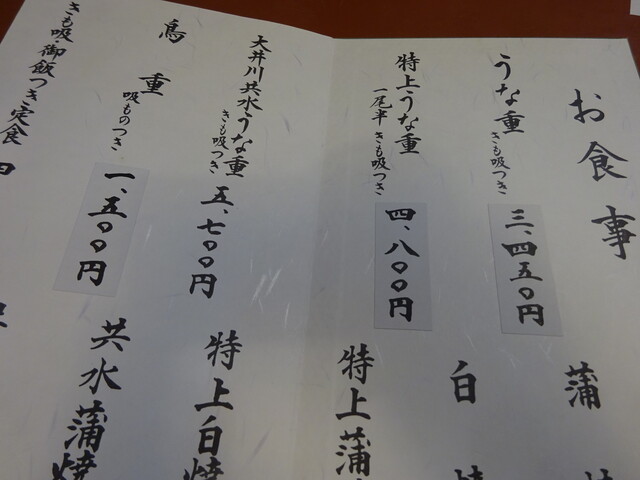 お食事
うな重 きも吸つき 三、四五〇円
特上うな重 一尾半 きも吸つき 四、八〇〇円
大井川共水うな重 きも吸つき 五、七〇〇円
鳥重 吸ものつき 一、五〇〇円
きも吸・御飯つき定食
蒲
白
特上蒲
特上白焼
共水蒲焼